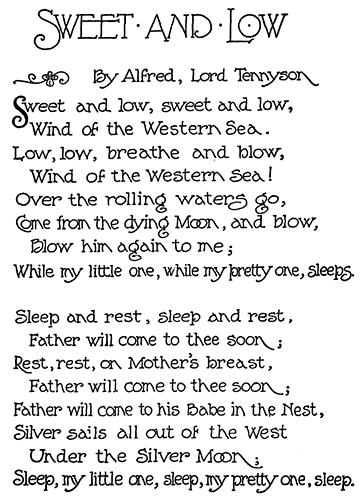 SWEET·AND·LOW
By Alfred, Lord Tennyson
Sweet and low, sweet and low,
Wind of the Western Sea.
Low, low, breathe and blow,
Wind of the Western Sea!
Over the rolling waters go,
Come from the dying Moon, and blow,
Blow him again to me;
While my little one, while my pretty one, sleeps.
Sleep and rest, sleep and rest,
Father will come to thee soon;
Rest, rest, on Mother's breast,
Father will come to thee soon;
Father will come to his Babe in the Nest,
Silver sails all out of the West
Under the Silver Moon;
Sleep, my little one, sleep, my pretty one, sleep.